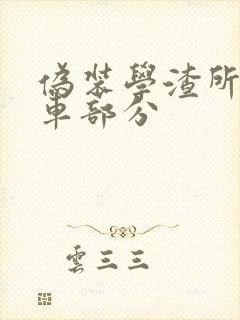 偽装學渣所
車部分
雲三三